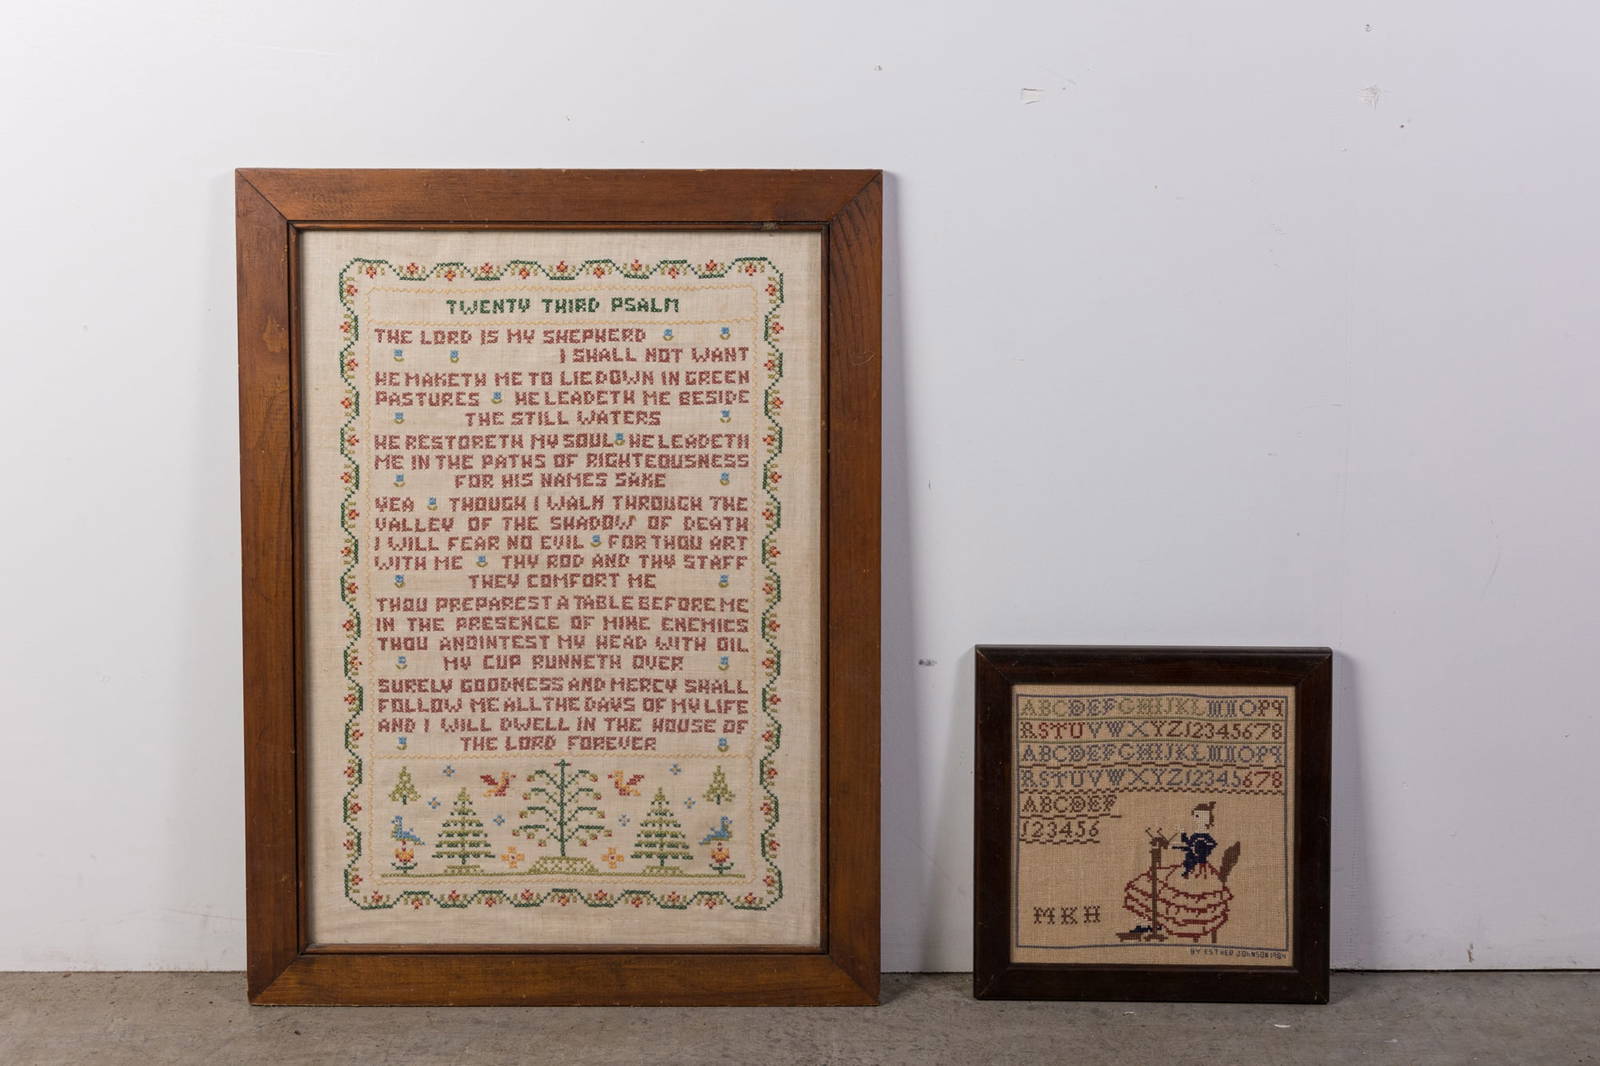 TWENTY THIRD PSALM
THE LORD IS MY SHEPHERD
I SHALL NOT WANT
HE MAKETH ME TO LIE DOWN IN GREEN
PASTURES HE LEADETH ME BESIDE
THE STILL WATERS
HE RESTORETH MY SOUL HE LEADETH
ME IN THE PATHS OF RIGHTEOUSNESS
FOR HIS NAMES SAKE
YEA THOUGH I WALK THROUGH THE
VALLEY OF THE SHADOW OF DEATH
I WILL FEAR NO EVIL FOR THOU ART
WITH ME THY ROD AND THY STAFF
THEY COMFORT ME
THOU PREPAREST A TABLE BEFORE ME
IN THE PRESENCE OF MINE ENEMIES
THOU ANOINTEST MY HEAD WITH OIL
MY CUP RUNNETH OVER
SURELY GOODNESS AND MERCY SHALL
FOLLOW ME ALL THE DAYS OF MY LIFE
AND I WILL DWELL IN THE HOUSE OF
THE LORD FOREVER
ABCDEFGHIJKLMNOPQ
RSTUVWXYZ12345678
ABCDEFGHIJKLMNOPQ
RSTUVWXYZ12345678
ABCDEF
123456
MKH
BY ESTHER JOHNSON 1984